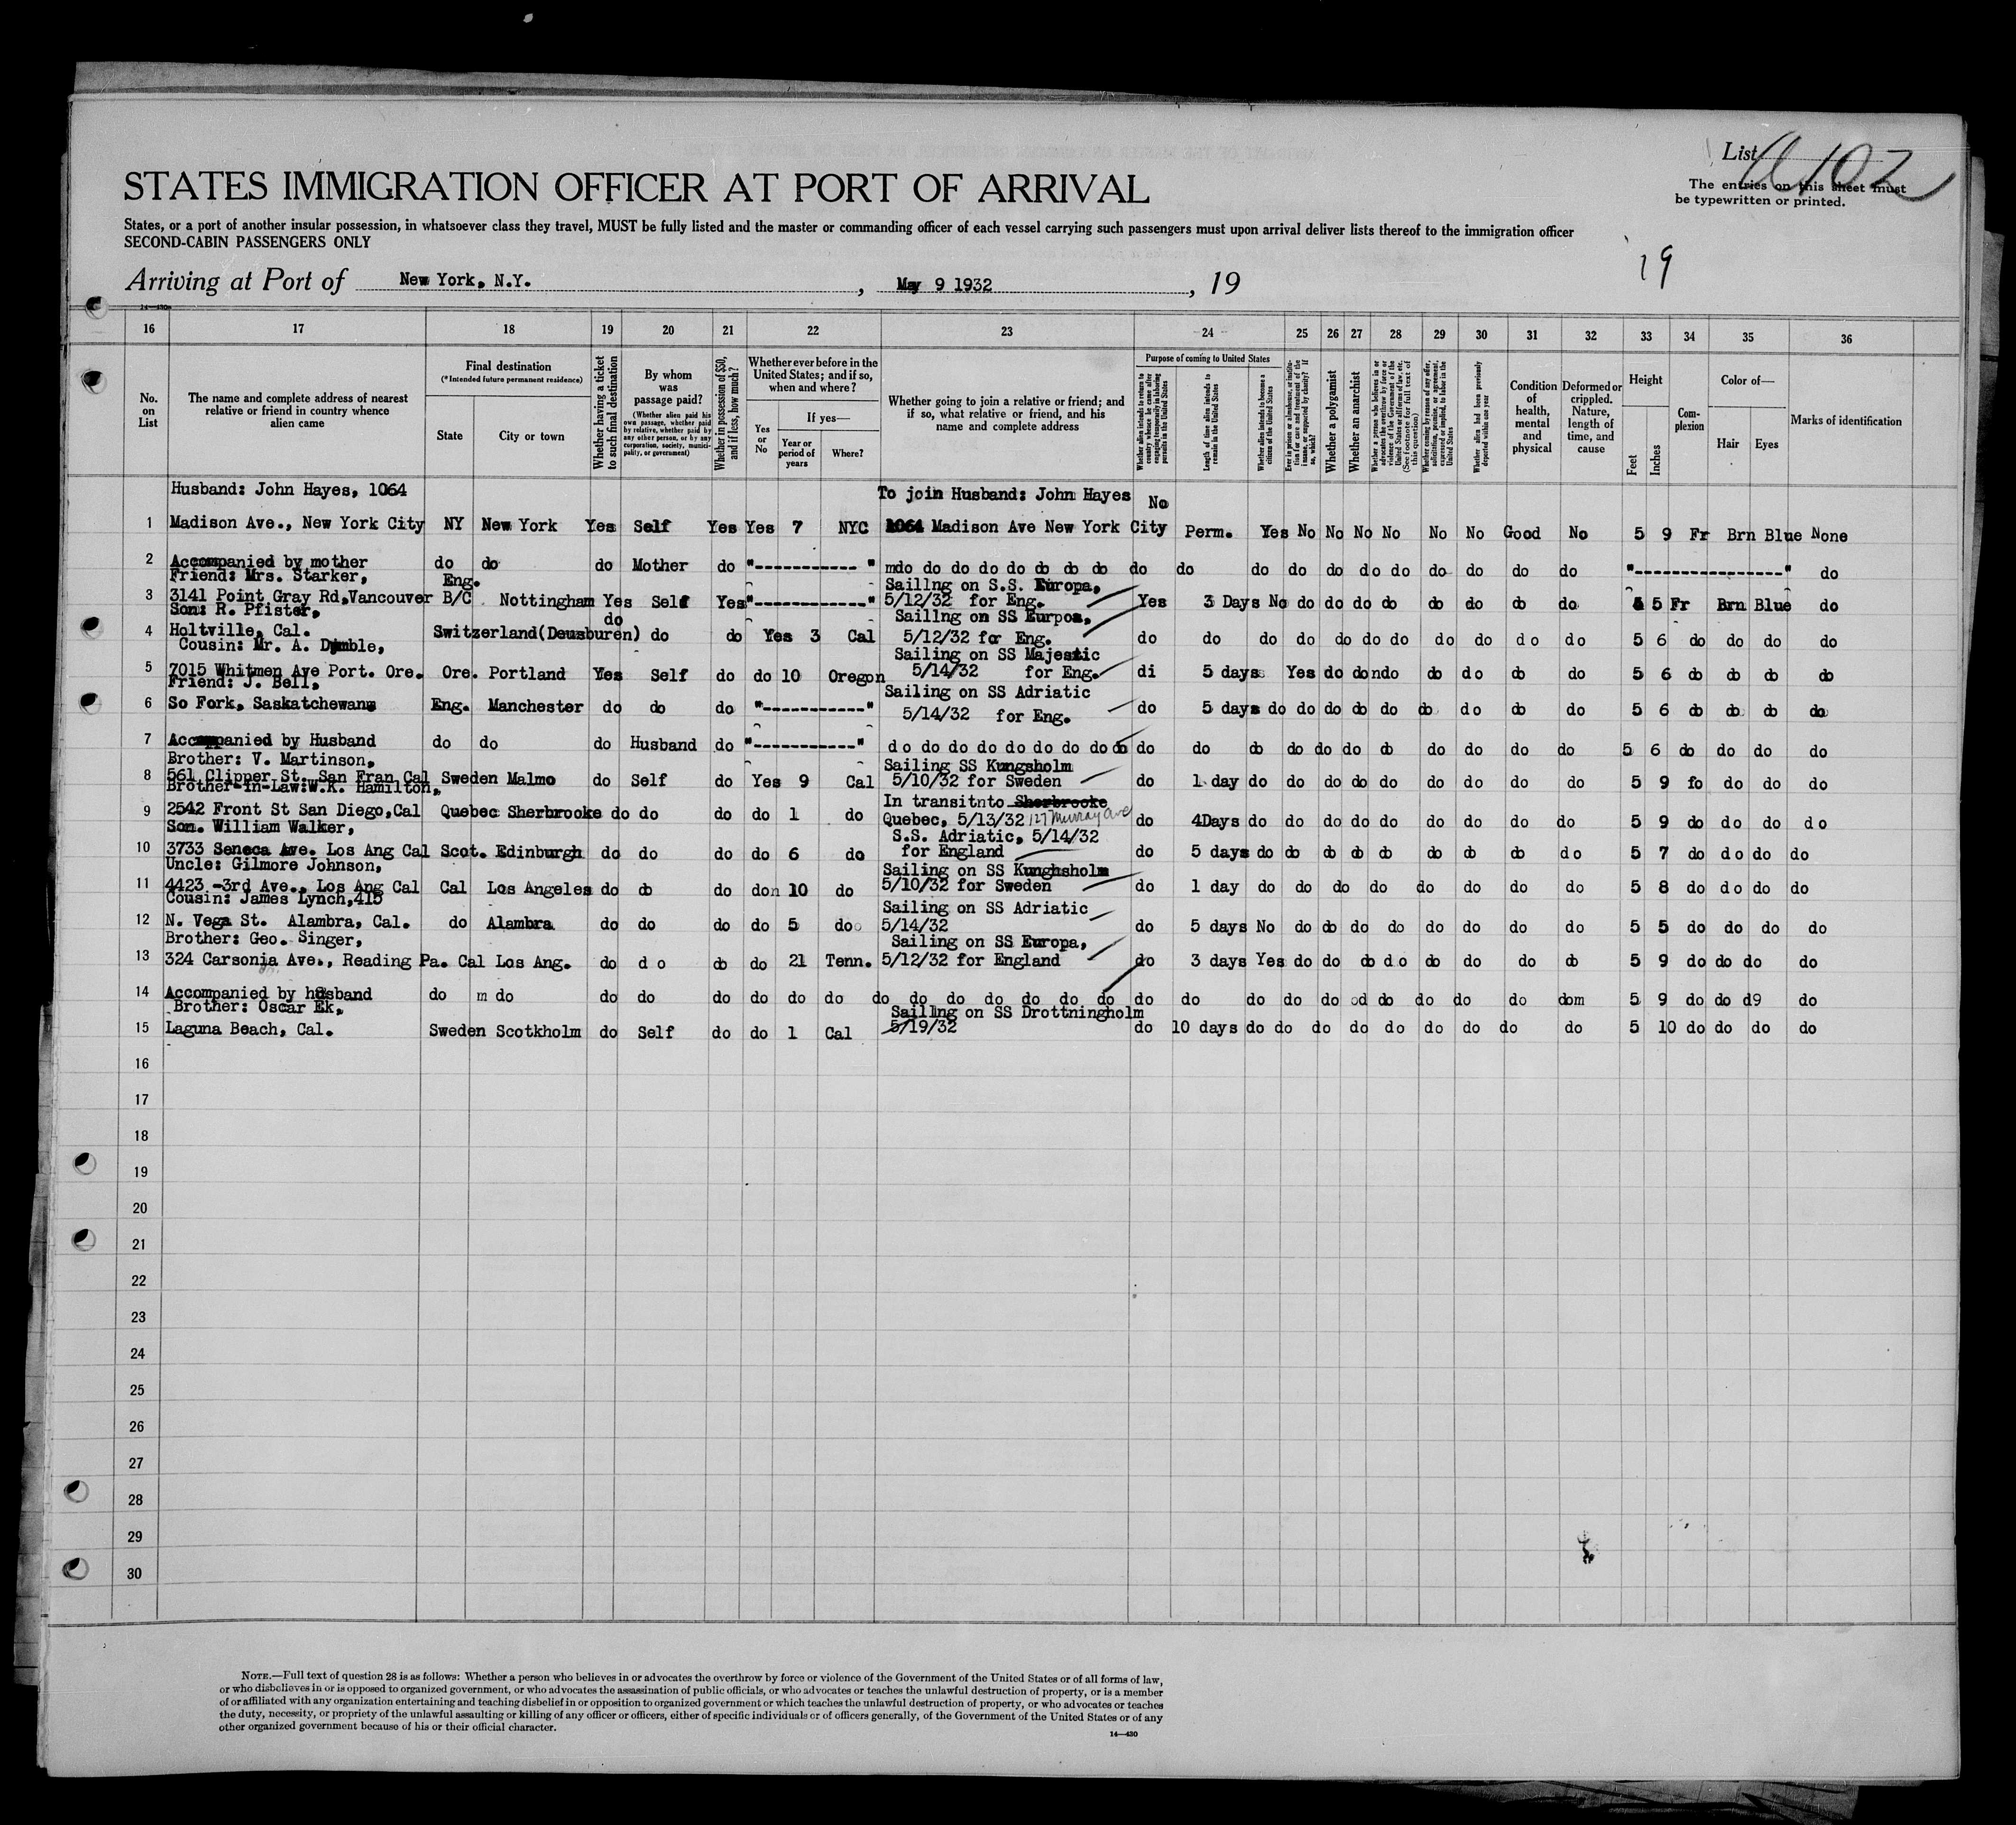 List a 102
STATES IMMIGRATION OFFICER AT PORT OF ARRIVAL
The entries on this sheet must
be typewritten or printed.
States, or a port of another insular possession, in whatsoever class they travel, MUST be fully listed and the master or commanding officer of each vessel carrying such passengers must upon arrival deliver lists thereof to the immigration officer
SECOND-CABIN PASSENGERS ONLY
19
Arriving at Port of New York, N.Y. , May 9 1932 , 19
14—430
16 17 18 19 20 21 22 23 24 25 26 27 28 29 30 31 32 33 34 35 36
No. on List
The name and complete address of nearest relative or friend in country whence alien came
Final destination
(*Intended future permanent residence)
State
City or town
Whether having a ticket to such final destination
By whom was passage paid?
(Whether alien paid his own passage, whether paid by relative, whether paid by any other person, or by any corporation, society, municipality, or government)
Whether in possession of $50, and if less, how much?
Whether ever before in the United States; and if so, when and where?
Yes or No
If yes—
Year or period of years
Where?
Whether going to join a relative or friend; and if so, what relative or friend, and his name and complete address
Purpose of coming to United States
Whether alien intends to return to country whence he came after engaging temporarily in laboring pursuits in the United States
Length of time alien intends to remain in the United States
Whether alien intends to become a citizen of the United States
Ever in prison or almshouse, or institution for care and treatment of the insane, or supported by charity? If so, which?
Whether a polygamist
Whether an anarchist
Whether a person who believes in or advocates the overthrow by force or violence of the Government of the United States or all forms of law, etc. (See footnote for full text of this question)
Whether coming by reason of any offer, solicitation, promise, or agreement, expressed or implied, to labor in the United States
Whether alien had been previously deported within one year
Condition of health, mental and physical
Deformed or crippled. Nature, length of time, and cause
Height
Feet
Inches
Complexion
Color of—
Hair
Eyes
Marks of identification
Husband: John Hayes, 1064 To join Husband: John Hayes No
1 Madison Ave., New York City NY New York Yes Self Yes Yes 7 NYC 1064 Madison Ave New York City Perm. Yes No No No No No No Good No 5 9 Fr Brn Blue None
2 Accompanied by mother do do do Mother do "-----------" mdo do do do do do do do do do do do do do do do do do do "----------------" do
Friend: Mrs. Starker, Eng. Sailing on S.S. Europa,
3 3141 Point Gray Rd,Vancouver B/C Nottingham Yes Self Yes"------------" 5/12/32 for Eng. Yes 3 Days No do do do do do do do do 5 5 Fr Brn Blue do
Son: R. Pfister, do Sailing on SS Eurpoa,
4 Holtville, Cal. Switzerland(Deusburen) do do Yes 3 Cal 5/12/32 for Eng. do do do do do do do do do do do 5 6 do do do do
Cousin: Mr. A. Dimble, Sailing on SS Majestic
5 7015 Whitmen Ave Port. Ore. Ore. Portland Yes Self do do 10 Oregon 5/14/32 for Eng. di 5 days Yes do do ndo do do do do 5 6 do do do do
Friend: J. Bell, Sailing on SS Adriatic
6 So Fork, Saskatchewan Eng. Manchester do do do "------------" 5/14/32 for Eng. do 5 days do do do do do do do do do 5 6 do do do do
7 Accompanied by Husband do do do Husband do "-----------" do do do do do do do do do do do do do do do do do do do do do 5 6 do do do do
Brother: V. Martinson, Sailing SS Kungsholm
8 561 Clipper St. San Fran Cal Sweden Malmo do Self do Yes 9 Cal 5/10/32 for Sweden do 1 day do do do do do do do do do 5 9 fo do do do
Brother-in-Law:W.K. Hamilton, In transitnto Sherbrooke
9 2542 Front St San Diego,Cal Quebec Sherbrooke do do do do 1 do Quebec, 5/13/32 127 Murray Ave do 4Days do do do do do do do do do 5 9 do do do do
Son. William Walker, S.S. Adriatic, 5/14/32
10 3733 Seneca Ave. Los Ang Cal Scot. Edinburgh do do do do 6 do for England do 5 days do do do do do do do do do 5 7 do do do do
Uncle: Gilmore Johnson, Sailing on SS Kunghsholm
11 4423 -3rd Ave., Los Ang Cal Cal Los Angeles do do do don 10 do 5/10/32 for Sweden do 1 day do do do do do do do do 5 8 do do do do
Cousin: James Lynch,415 Sailing on SS Adriatic
12 N. Vega St. Alambra, Cal. do Alambra do do do do 5 do 5/14/32 do 5 days No do do do do do do do do 5 5 do do do do
Brother: Geo. Singer, Sailing on SS Europa,
13 324 Carsonia Ave., Reading Pa. Cal Los Ang. do do do do 21 Tenn. 5/12/32 for England do 3 days Yes do do do do do do do do 5 9 do do do do
14 Accompanied by husband do m do do do do do do do do do do do do do do do do do do do od do do do do dom 5 9 do do d9 do
Brother: Oscar Ek, Sailing on SS Drottningholm
15 Laguna Beach, Cal. Sweden Scotkholm do Self do do 1 Cal 5/19/32 do 10 days do do do do do do do do do 5 10 do do do do
16
17
18
19
20
21
22
23
24
25
26
27
28
29
30
NOTE.—Full text of question 28 is as follows: Whether a person who believes in or advocates the overthrow by force or violence of the Government of the United States or of all forms of law,
or who disbelieves in or is opposed to organized government, or who advocates the assassination of public officials, or who advocates or teaches the unlawful destruction of property, or is a member
of or affiliated with any organization entertaining and teaching disbelief in or opposition to organized government or which teaches the unlawful destruction of property, or who advocates or teaches
the duty, necessity, or propriety of the unlawful assaulting or killing of any officer or officers, either of specific individuals or of officers generally, of the Government of the United States or of any
other organized government because of his or their official character.
14—430